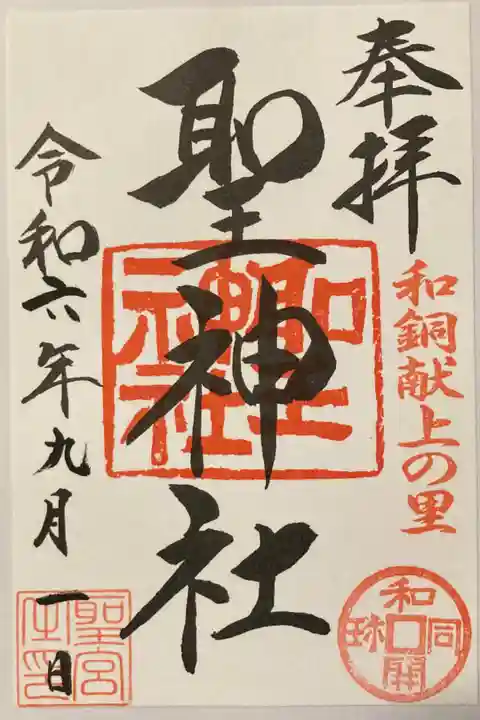 奉拝
和銅献上の里
和同開珎
聖神社
聖神社
令和六年九月一日